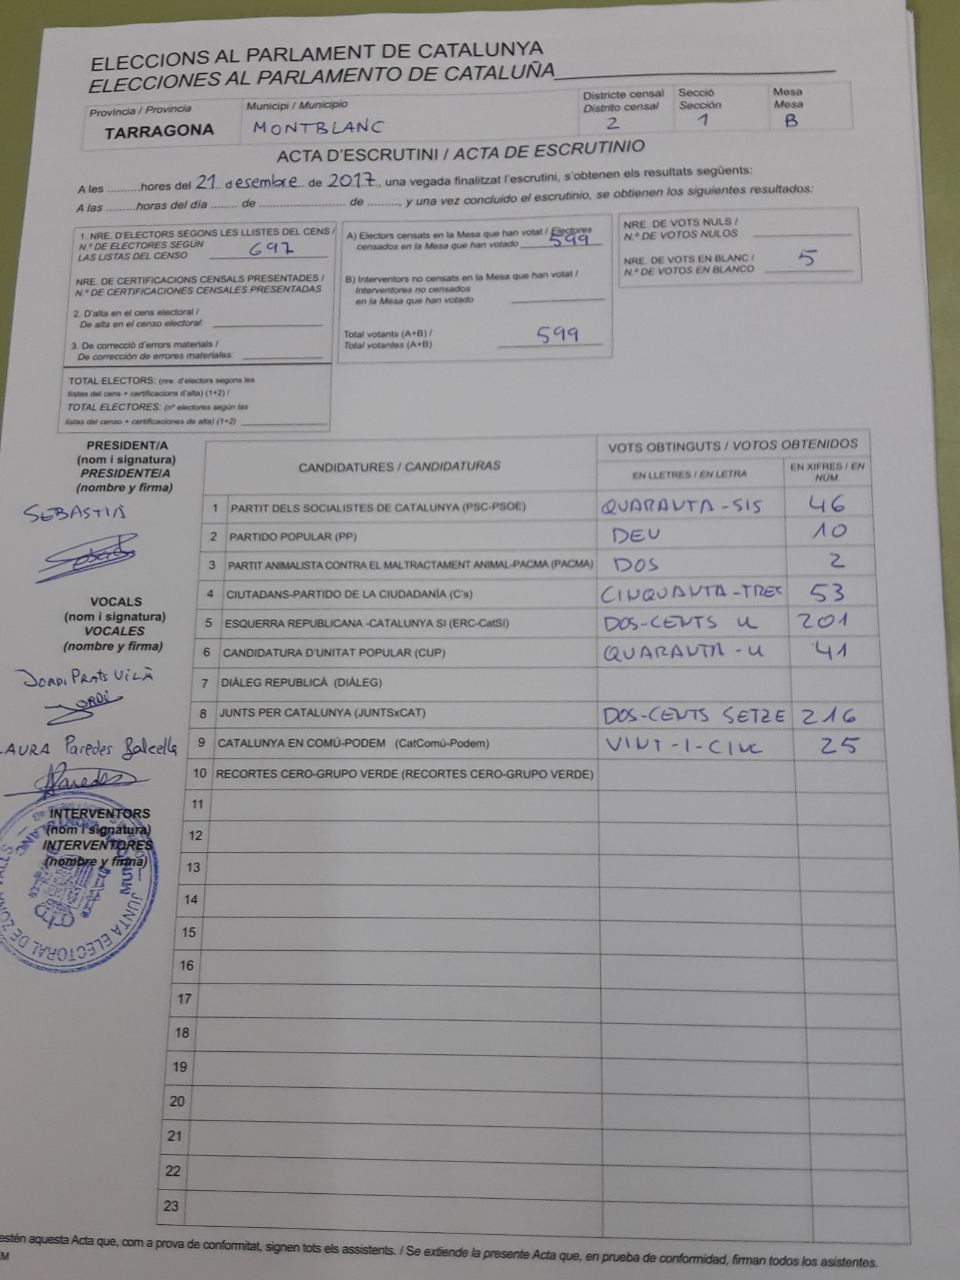 ELECCIONS AL PARLAMENT DE CATALUNYA
ELECCIONES AL PARLAMENTO DE CATALUÑA
Província / Provincia
TARRAGONA
Municipi / Municipio
MONTBLANC
Districte censal
Distrito censal
2
Secció
Sección
1
Mesa
Mesa
B
ACTA D'ESCRUTINI / ACTA DE ESCRUTINIO
A les ..........hores del 21 desembre de 2017, una vegada finalitzat l'escrutini, s'obtenen els resultats següents:
A las ..........horas del día ........ de .......................... de ........., y una vez concluido el escrutinio, se obtienen los siguientes resultados:
1. NRE. D'ELECTORS SEGONS LES LLISTES DEL CENS /
N.º DE ELECTORES SEGÚN
LAS LISTAS DEL CENSO 697
NRE. DE CERTIFICACIONS CENSALS PRESENTADES /
N.º DE CERTIFICACIONES CENSALES PRESENTADAS
2. D'alta en el cens electoral /
De alta en el censo electoral:
3. De correcció d'errors materials /
De corrección de errores materiales:
TOTAL ELECTORS: (nre. d'electors segons les
llistes del cens + certificacions d'alta) (1+2) /
TOTAL ELECTORES: (nº electores según las
listas del censo + certificaciones de alta) (1+2)
A) Electors censats en la Mesa que han votat / Electores
censados en la Mesa que han votado 599
B) Interventors no censats en la Mesa que han votat /
Interventores no censados
en la Mesa que han votado
Total votants (A+B) /
Total votantes (A+B) 599
NRE. DE VOTS NULS /
N.º DE VOTOS NULOS
NRE. DE VOTS EN BLANC /
N.º DE VOTOS EN BLANCO 5
PRESIDENT/A
(nom i signatura)
PRESIDENTE/A
(nombre y firma)
SEBASTIÀ
VOCALS
(nom i signatura)
VOCALES
(nombre y firma)
JORDI PRATS VILÀ
JORDI
LAURA Paredes Balcells
Paredes
INTERVENTORS
(nom i signatura)
INTERVENTORES
(nombre y firma)
JUNTA ELECTORAL DE ZONA VALLS
CANDIDATURES / CANDIDATURAS
VOTS OBTINGUTS / VOTOS OBTENIDOS
EN LLETRES / EN LETRA
EN XIFRES / EN NÚM.
1 PARTIT DELS SOCIALISTES DE CATALUNYA (PSC-PSOE) QUARANTA-SIS 46
2 PARTIDO POPULAR (PP) DEU 10
3 PARTIT ANIMALISTA CONTRA EL MALTRACTAMENT ANIMAL-PACMA (PACMA) DOS 2
4 CIUTADANS-PARTIDO DE LA CIUDADANÍA (C's) CINQUANTA-TRES 53
5 ESQUERRA REPUBLICANA -CATALUNYA SÍ (ERC-CatSí) DOS-CENTS U 201
6 CANDIDATURA D'UNITAT POPULAR (CUP) QUARANTA-U 41
7 DIÀLEG REPUBLICÀ (DIÀLEG)
8 JUNTS PER CATALUNYA (JUNTSxCAT) DOS-CENTS SETZE 216
9 CATALUNYA EN COMÚ-PODEM (CatComú-Podem) VINT-I-CINC 25
10 RECORTES CERO-GRUPO VERDE (RECORTES CERO-GRUPO VERDE)
11
12
13
14
15
16
17
18
19
20
21
22
23
estén aquesta Acta que, com a prova de conformitat, signen tots els assistents. / Se extiende la presente Acta que, en prueba de conformidad, firman todos los asistentes.